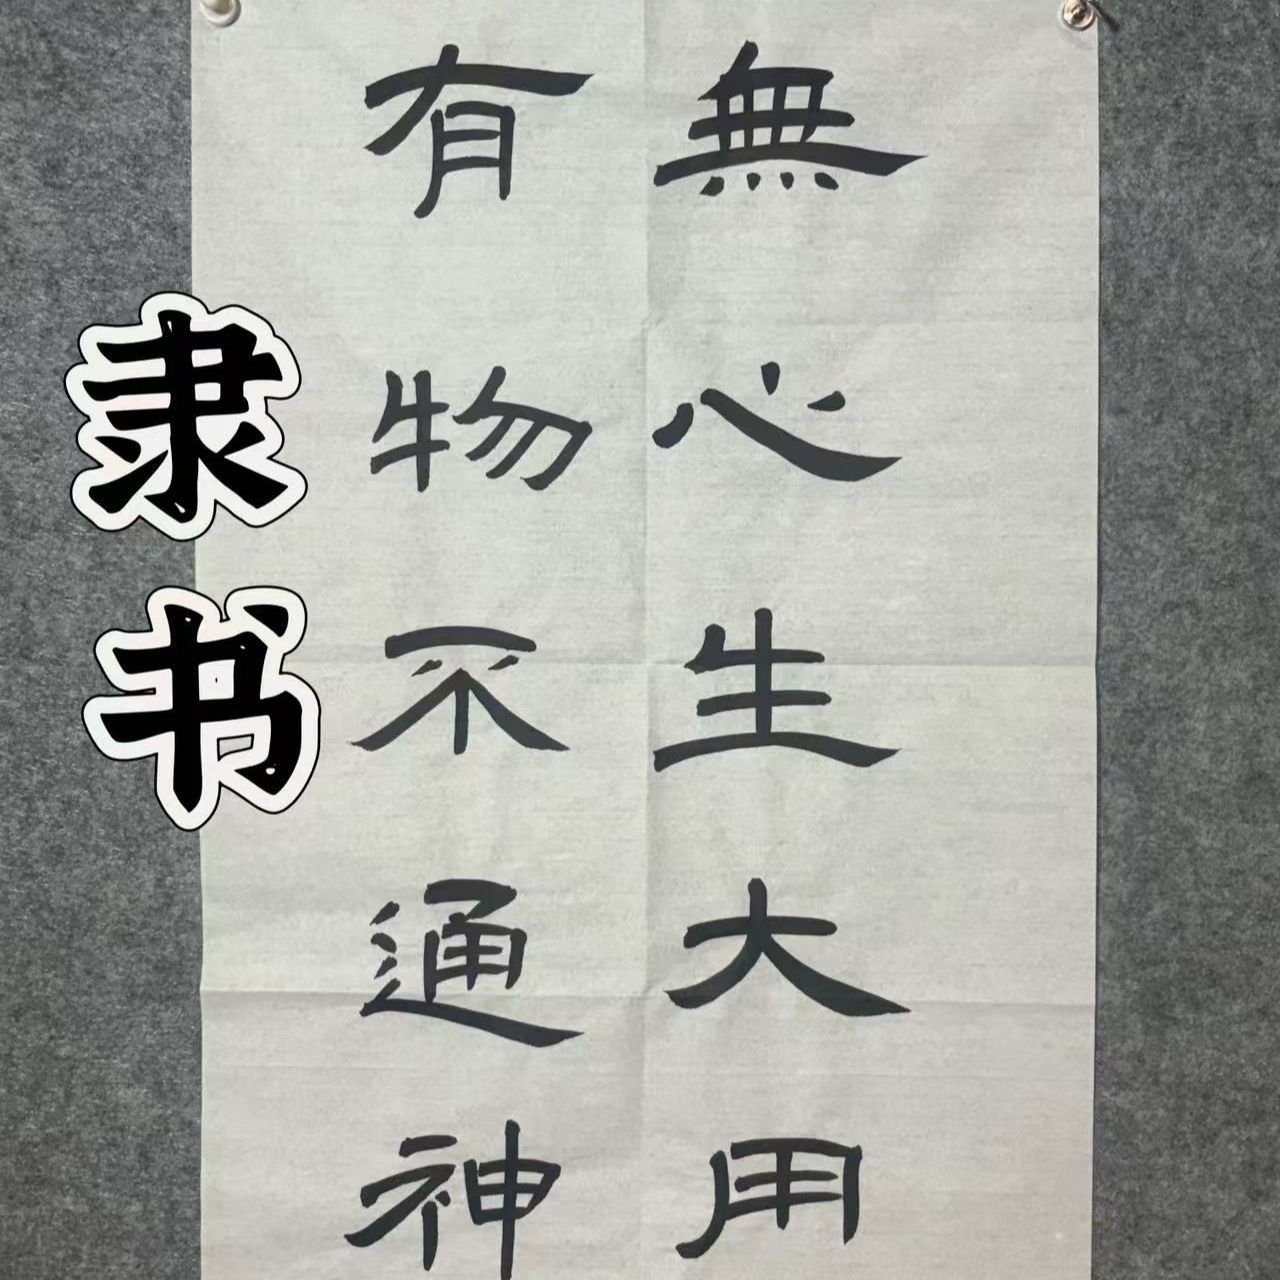 無心生大用
有物不通神
隶书